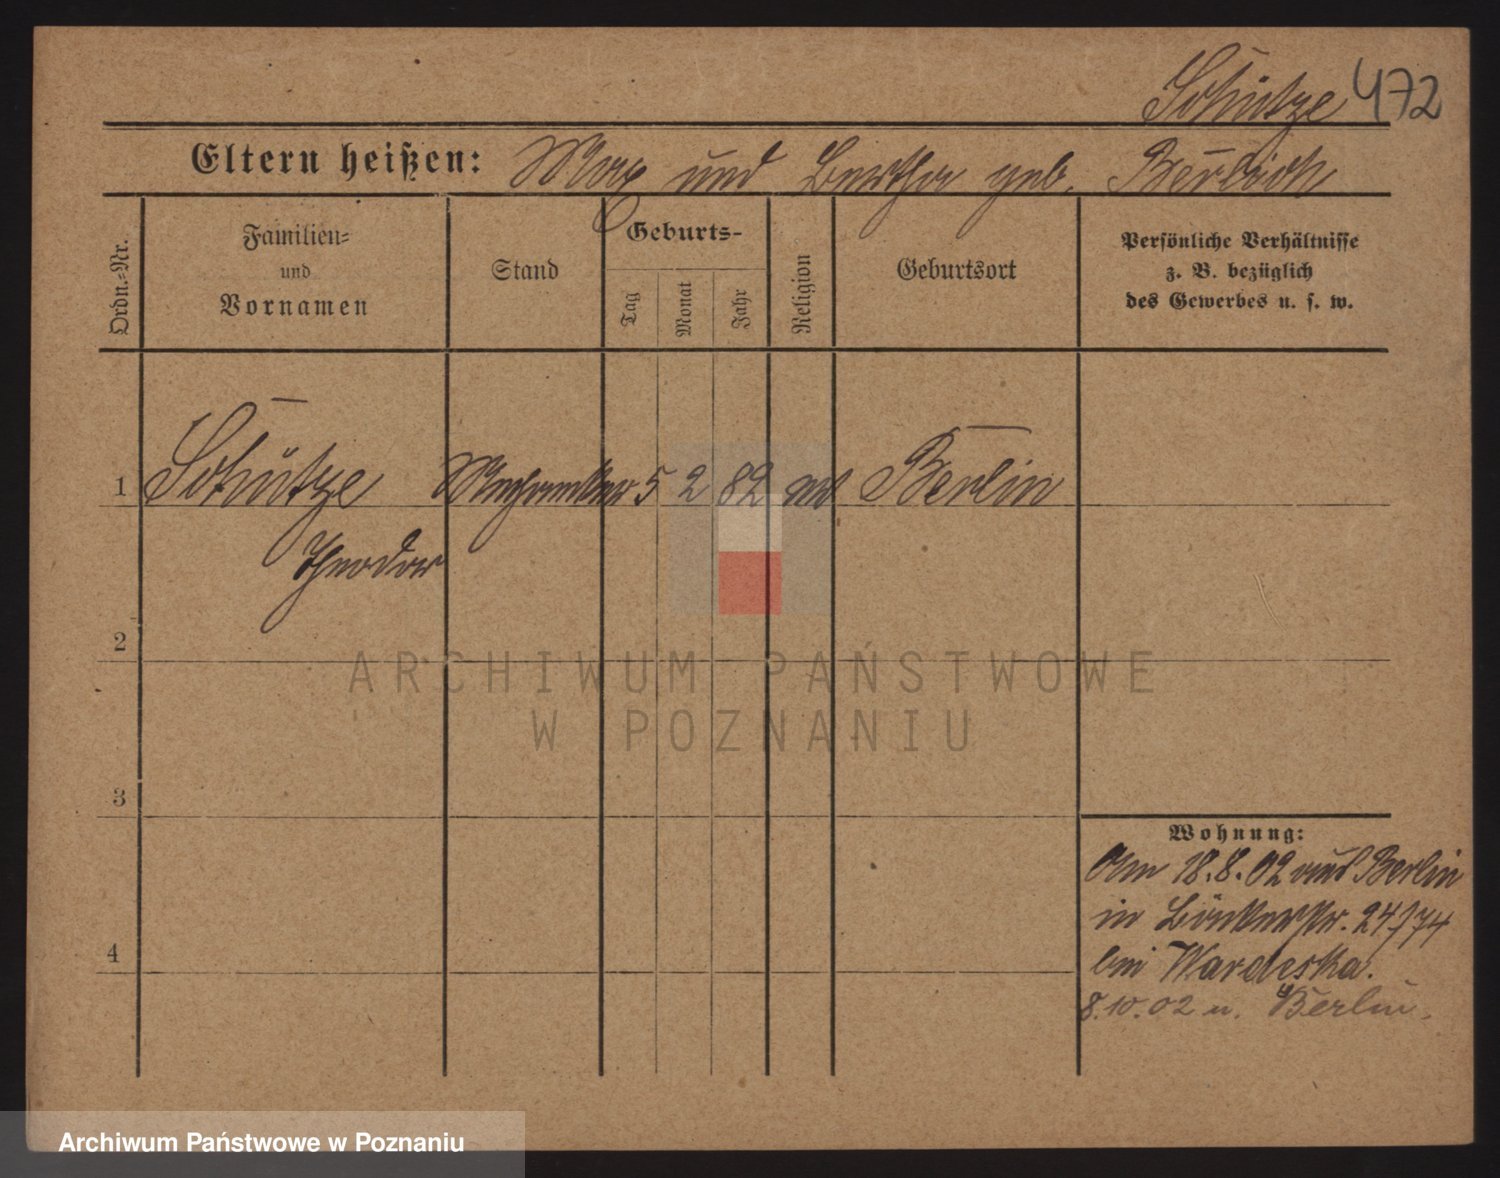 Schütze 472
Eltern heißen: Max und Bertha geb. Berbich
Ordn.-Nr.
Familien-
und
Vornamen
Stand
Geburts-
Tag
Monat
Jahr
Religion
Geburtsort
Persönliche Verhältnisse
z. B. bezüglich
des Gewerbes u. s. w.
1 Schütze Mechaniker 5 2 82 ev Berlin
Theodor
2
3
4
Wohnung:
Am 18.8.02 aus Berlin
in Bäckerstr. 24/74
bei Wardeska.
8.10.02 n. Berlin.
ARCHIWUM PAŃSTWOWE
W POZNANIU
Archiwum Państwowe w Poznaniu